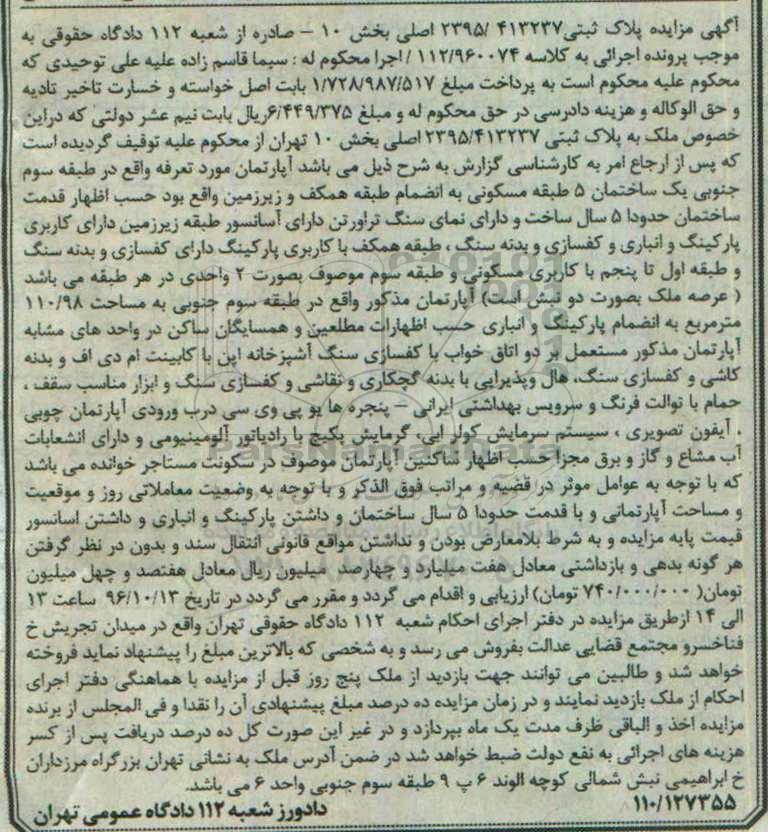 آگهی مزایده پلاک ثبتی۴۱۳۲۳۷ /۲۳۹۵ اصلی بخش ۱۰ – صادره از شعبه ۱۱۲ دادگاه حقوقی به
موجب پرونده اجرائی به کلاسه ۱۱۲/۹۶۰۰۷۴ / اجرا محکوم له : سیما قاسم زاده علیه علی توحیدی که
محکوم علیه محکوم است به پرداخت مبلغ ۱/۷۲۸/۹۸۷/۵۱۷ بابت اصل خواسته و خسارت تاخیر تادیه
و حق الوکاله و هزینه دادرسی در حق محکوم له و مبلغ ۶/۴۴۹/۳۷۵ریال بابت نیم عشر دولتی که دراین
خصوص ملک به پلاک ثبتی ۲۳۹۵/۴۱۳۲۳۷ اصلی بخش ۱۰ تهران از محکوم علیه توقیف گردیده است
که پس از ارجاع امر به کارشناسی گزارش به شرح ذیل می باشد آپارتمان مورد تعرفه واقع در طبقه سوم
جنوبی یک ساختمان ۵ طبقه مسکونی به انضمام طبقه همکف و زیرزمین واقع بود حسب اظهار قدمت
ساختمان حدودا ۵ سال ساخت و دارای نمای سنگ تراورتن دارای آسانسور طبقه زیرزمین دارای کاربری
پارکینگ و انباری و کفسازی و بدنه سنگ ، طبقه همکف با کاربری پارکینگ دارای کفسازی و بدنه سنگ
و طبقه اول تا پنجم با کاربری مسکونی و طبقه سوم موصوف بصورت ۲ واحدی در هر طبقه می باشد
( عرصه ملک بصورت دو نبش است) آپارتمان مذکور واقع در طبقه سوم جنوبی به مساحت ۱۱۰/۹۸
مترمربع به انضمام پارکینگ و انباری حسب اظهارات مطلعین و همسایگان ساکن در واحد های مشابه
آپارتمان مذکور مستعمل بر دو اتاق خواب با کفسازی سنگ آشپزخانه اپن با کابینت ام دی اف و بدنه
کاشی و کفسازی سنگ، هال وپذیرایی با بدنه گچکاری و نقاشی و کفسازی سنگ و ابزار مناسب سقف ،
حمام با توالت فرنگ و سرویس بهداشتی ایرانی – پنجره ها یو پی وی سی درب ورودی آپارتمان چوبی
، آیفون تصویری ، سیستم سرمایش کولر ابی، گرمایش پکیج با رادیاتور آلومینیومی و دارای انشعابات
آب مشاع و گاز و برق مجزا حسب اظهار ساکنین آپارتمان موصوف در سکونت مستاجر خوانده می باشد
که با توجه به عوامل موثر در قضیه و مراتب فوق الذکر و با توجه به وضعیت معاملاتی روز و موقعیت
و مساحت آپارتمانی و با قدمت حدودا ۵ سال ساختمان و داشتن پارکینگ و انباری و داشتن اسانسور
قیمت پایه مزایده و به شرط بلامعارض بودن و نداشتن مواقع قانونی انتقال سند و بدون در نظر گرفتن
هر گونه بدهی و بازداشتی معادل هفت میلیارد و چهارصد میلیون ریال معادل هفتصد و چهل میلیون
تومان( ۷۴۰/۰۰۰/۰۰۰ تومان) ارزیابی و اقدام می گردد و مقرر می گردد در تاریخ ۹۶/۱۰/۱۳ ساعت ۱۳
الی ۱۴ ازطریق مزایده در دفتر اجرای احکام شعبه ۱۱۲ دادگاه حقوقی تهران واقع در میدان تجریش خ
فناخسرو مجتمع قضایی عدالت بفروش می رسد و به شخصی که بالاترین مبلغ را پیشنهاد نماید فروخته
خواهد شد و طالبین می توانند جهت بازدید از ملک پنج روز قبل از مزایده با هماهنگی دفتر اجرای
احکام از ملک بازدید نمایند و در زمان مزایده ده درصد مبلغ پیشنهادی آن را نقدا و فی المجلس از برنده
مزایده اخذ و الباقی ظرف مدت یک ماه بپردازد و در غیر این صورت کل ده درصد دریافت پس از کسر
هزینه های اجرائی به نفع دولت ضبط خواهد شد در ضمن آدرس ملک به نشانی تهران بزرگراه مرزداران
خ ابراهیمی نبش شمالی کوچه الوند ۶ پ ۹ طبقه سوم جنوبی واحد ۶ می باشد.
۱۱۰/۱۲۷۳۵۵
دادورز شعبه ۱۱۲ دادگاه عمومی تهران